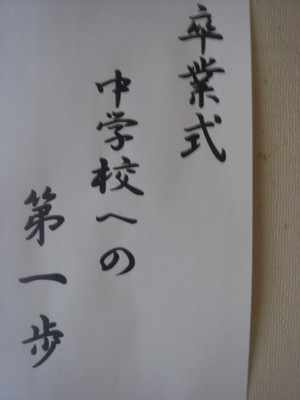 卒業式
中学校への
第一歩